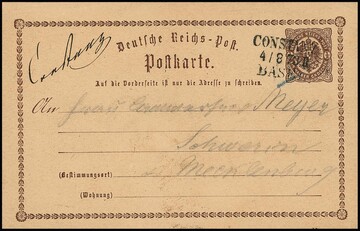 Constanz
Deutsche Reichs-Post.
Postkarte.
CONST
4/8
BAS
Auf die Vorderseite ist nur die Adresse zu schreiben.
An Frau Meyer
Schwerin
(Bestimmungsort) in Mecklenburg
(Wohnung)